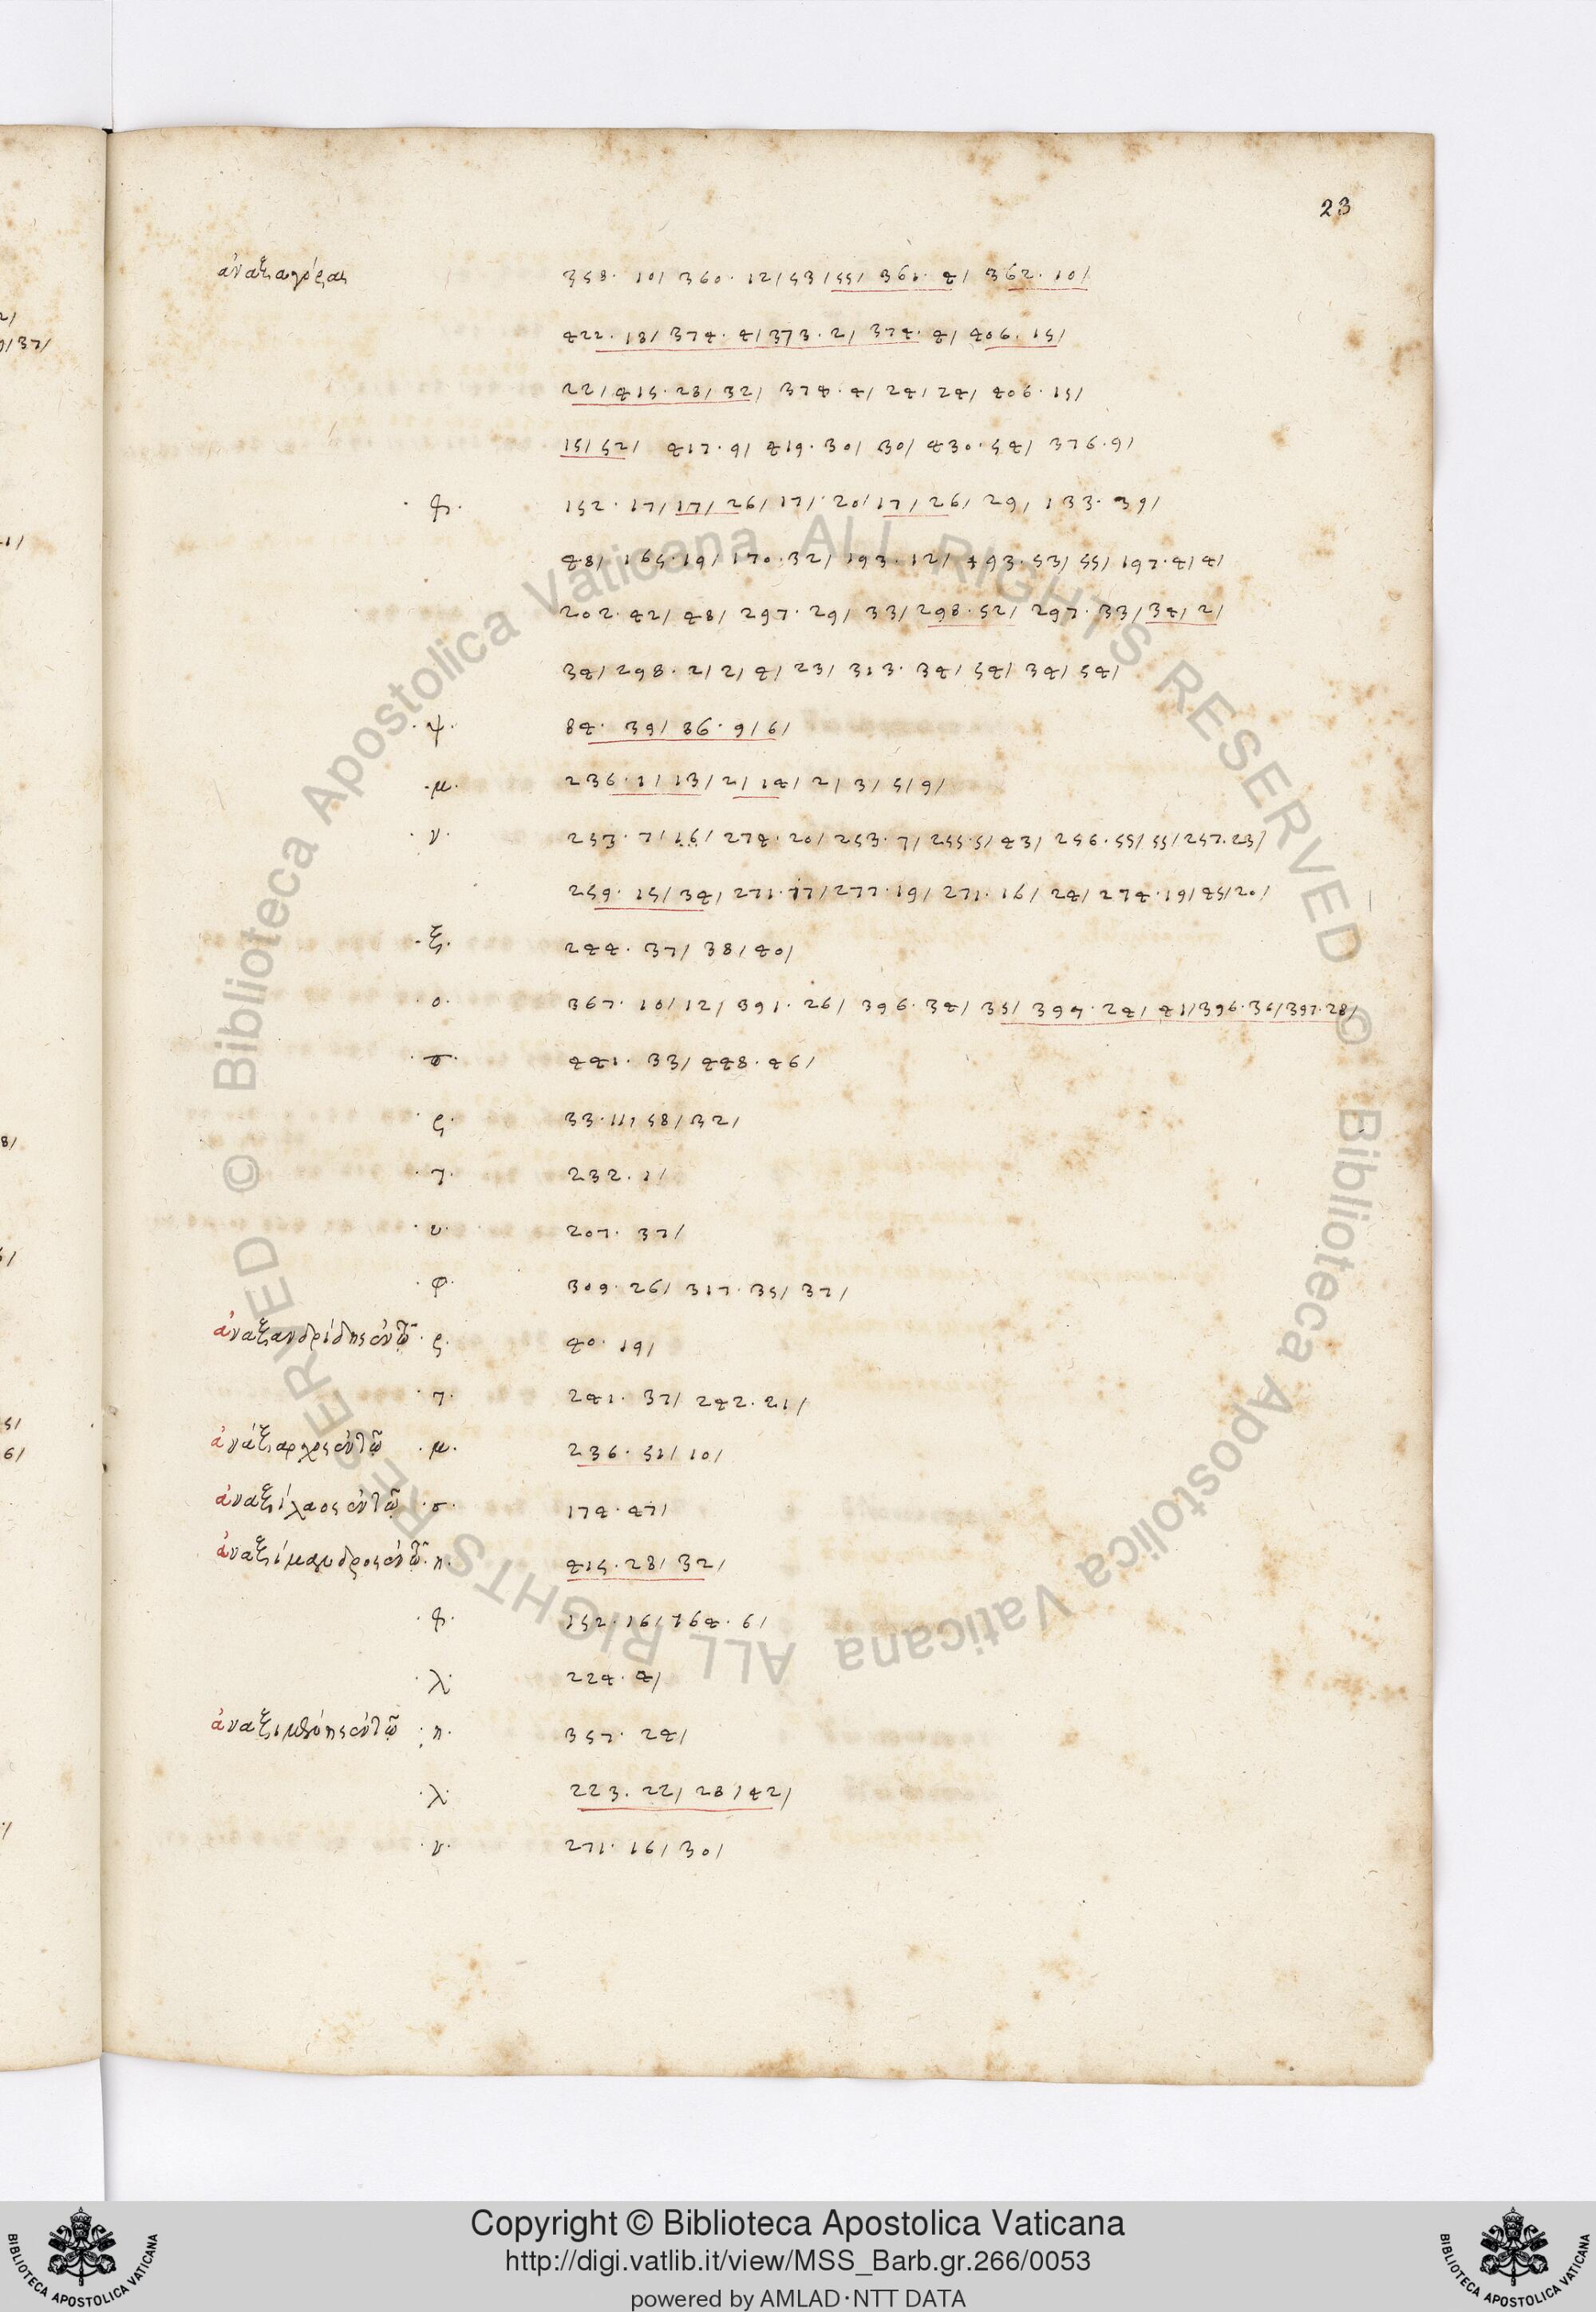 23
ἀναξαγόρας 358 · 10/ 360 · 12/ 53/ 55/ 361 · 4/ 362 · 10/
422 · 18/ 374 · 4/ 373 · 2/ 374 · 4/ 406 · 15/
22/ 415 · 28/ 32/ 374 · 4/ 24/ 24/ 406 · 15/
15/ 52/ 417 · 9/ 419 · 30/ 30/ 430 · 54/ 376 · 9/
152 · 17/ 17/ 26/ 17/ 20/ 17/ 26/ 29/ 133 · 39/
48/ 165 · 19/ 170 · 32/ 193 · 12/ 493 · 53/ 55/ 197 · 4/ 4/
202 · 42/ 48/ 297 · 29/ 33/ 298 · 52/ 297 · 33/ 34/ 2/
34/ 298 · 2/ 2/ 4/ 23/ 313 · 34/ 54/ 34/ 54/
· ψ · 84 · 39/ 86 · 9/ 6/
· μ · 236 · 1/ 13/ 2/ 14/ 2/ 3/ 5/ 9/
· ν · 253 · 7/ 16/ 274 · 20/ 253 · 7/ 255 · 5/ 43/ 256 · 55/ 55/ 257 · 23/
259 · 15/ 34/ 271 · 17/ 277 · 19/ 271 · 16/ 24/ 274 · 19/ 45/ 20/
· ξ · 244 · 37/ 38/ 40/
· ο · 367 · 10/ 12/ 391 · 26/ 396 · 34/ 35/ 397 · 24/ 41/ 396 · 36/ 397 · 28/
441 · 33/ 448 · 46/
· ς · 33 · 11/ 58/ 32/
· τ · 232 · 1/
· υ · 207 · 37/
· φ · 309 · 26/ 317 · 35/ 37/
ἀναξανδρίδης ἐν τῷ · ς · 40 · 19/
· τ · 241 · 37/ 242 · 21/
ἀνάξαρχος ἐν τῷ · μ · 236 · 51/ 10/
ἀναξίλαος ἐν τῷ · σ · 174 · 47/
ἀναξίμανδρος ἐν τῷ · π · 415 · 28/ 32/
152 · 16/ 164 · 6/
· λ · 224 · 4/
ἀναξιμένης ἐν τῷ · π · 357 · 24/
· λ · 223 · 22/ 28/ 42/
· ν · 271 · 16/ 30/
© Biblioteca Apostolica Vaticana ALL RIGHTS RESERVED © Biblioteca Apostolica Vaticana ALL RIGHTS RESERVED
Copyright © Biblioteca Apostolica Vaticana
http://digi.vatlib.it/view/MSS_Barb.gr.266/0053
powered by AMLAD·NTT DATA
BIBLIOTECA APOSTOLICA VATICANA
BIBLIOTECA APOSTOLICA VATICANA